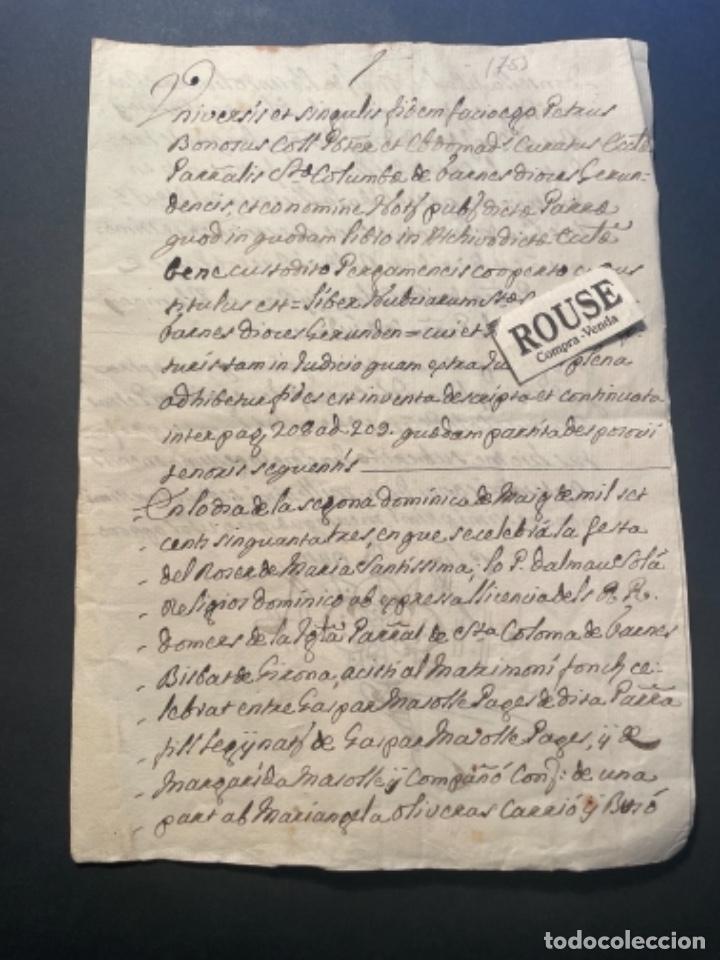 (75)
Universis et singulis fidem facio ego Petrus
Bonosus Coll Pbter et Ebdomad.s Curatus Ecctæ
Parralis Stæ Columbæ de Farnes dioces Gerun-
dencis, et eo nomine Nots pubs dictæ Parræ
quod in quodam libro in Archivo dictæ Ecctæ
bene custodito Pergameneis cooperto cujus
titulus est = Liber Nubciarum Stæ
Farnes dioces Gerunden = cui et
turis tam in Judicio quam extra Ju plena
adhibetur fides est inventa descripta et continuata
inter pag 208 ad 209. quædam partita desposorii
tenoris sequentis
= En lo dia de la segona dominica de Maig de mil set
- cents sinquanta tres, en que se celebrá la festa
- del Roser de Maria Santissima, lo P. Dalmau Solá
- Religios Dominico ab expressa llicencia dels R. R.
- domers de la Iglā Parral de Sta Coloma de Farnes
- Bisbat de Girona, acisti al Matrimoni fonch ce-
- lebrat entre Gaspar Masolle Pages de dita Parra
- fill legÿ natl de Gaspar Masolle Pages, ÿ de
- Margarida Masolle ÿ Compañó Conj: de una
- part ab Mariangela Oliveras Carrió ÿ Busó
ROUSE
Compra-Venda
todocoleccion.net